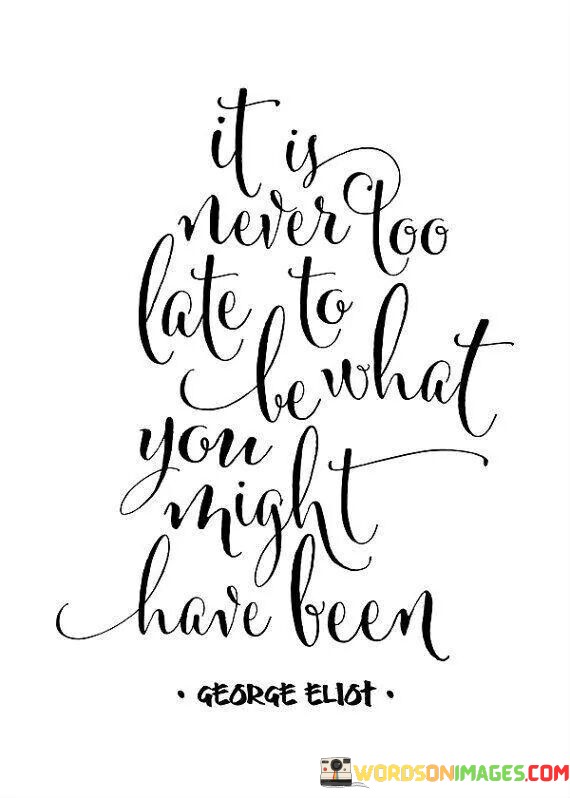 it is
never too
late to
be what
you
might
have been
• GEORGE ELIOT •
WORDSONIMAGES.COM